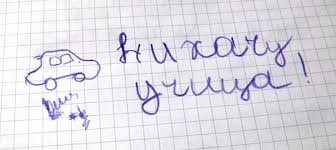 Нихачу
учица!